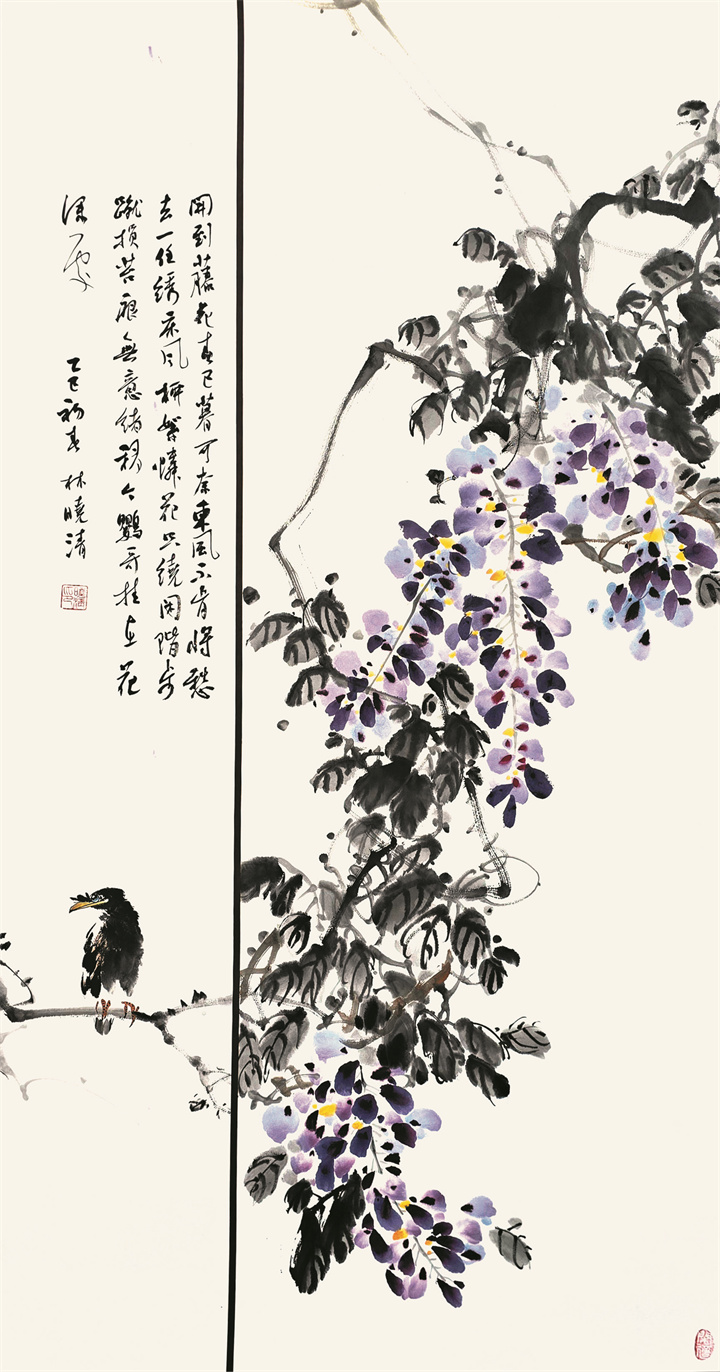 開到藤花春已暮可奈東風不肯將愁
去一任繡風絮憐花只繞閑階步
蹴損苔痕無意緒移个鸚哥挂在花
深處
乙巳初春 林曉清